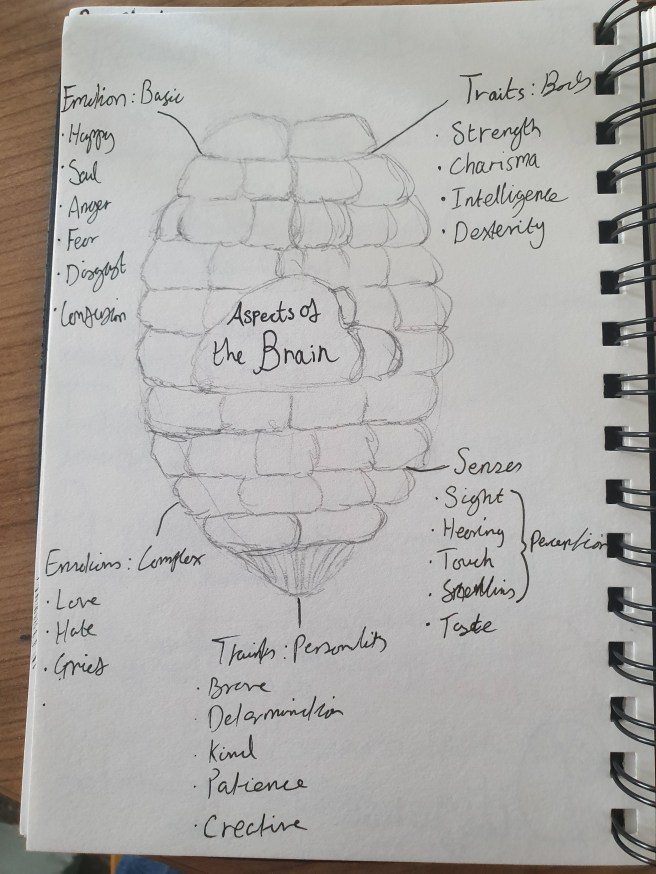 Emotion: Basic
· Happy
· Sad
· Anger
· Fear
· Disgust
· Confusion
Traits: Body
· Strength
· Charisma
· Intelligence
· Dexterity
Aspects of
the Brain
Senses
· Sight
· Hearing
· Touch
· Smelling
· Taste
Perception
Emotions: Complex
· Love
· Hate
· Grief
·
Traits: Personality
· Brave
· Determination
· Kind
· Patience
· Creative